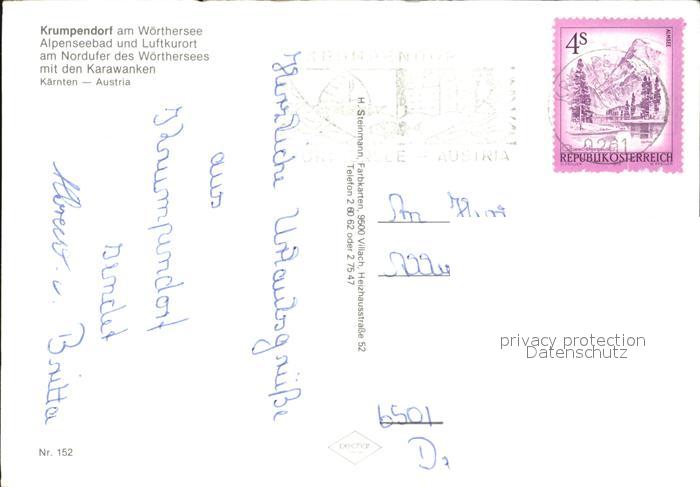 Krumpendorf am Wörthersee
Alpenseebad und Luftkurort
am Nordufer des Wörthersees
mit den Karawanken
Kärnten — Austria
Herzliche Urlaubsgrüße
aus
Krumpendorf
sendet
u. Britta
H. Steinmann, Farbkarten, 9500 Villach, Heizhausstraße 52
Telefon 2 80 62 oder 2 75 47
KRUMPENDORF
AUSTRIA
4 S
ALMSEE
REPUBLIK ÖSTERREICH
An
6501
privacy protection
Datenschutz
pechar
Nr. 152